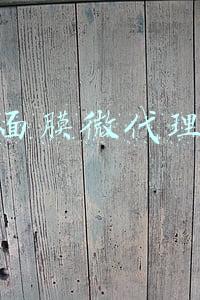 面膜微代理